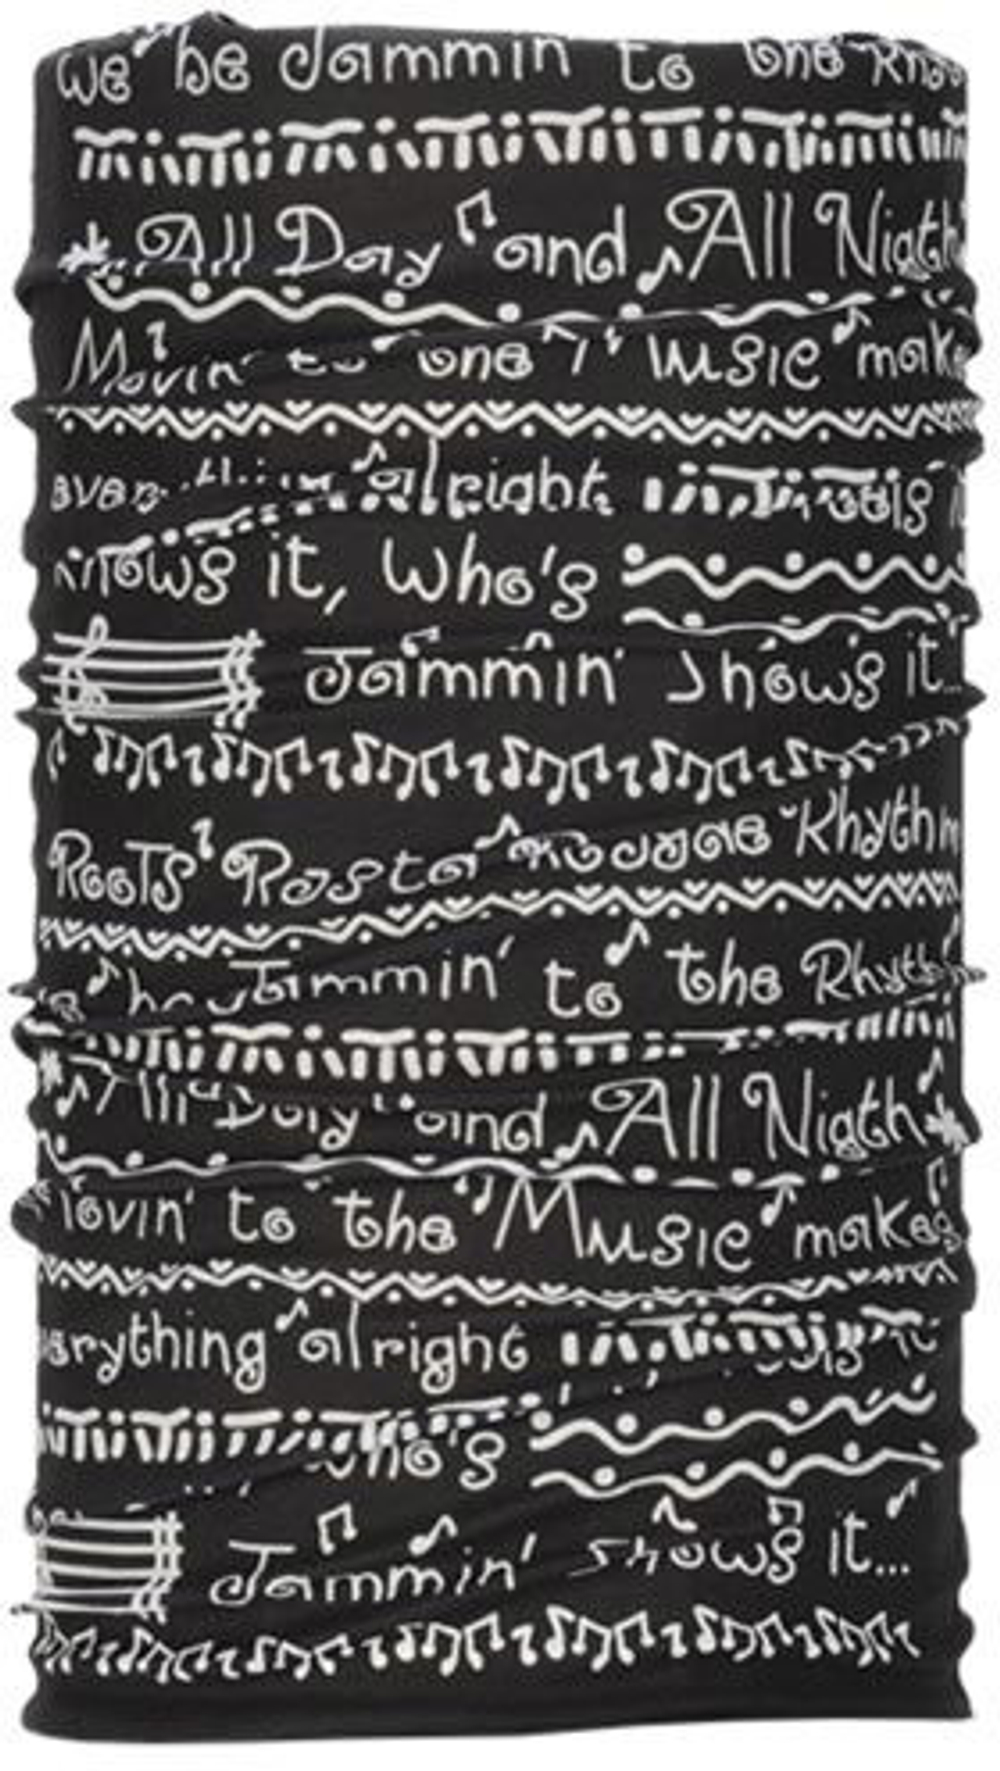 We be Jammin to the
All Day and All Nigth
Movin' to the Music make
every alright
knows it, Who's
Jammin' shows it...
Roots Rasta Reggae Rhythm
be Jammin' to the Rhyth
All Day and All Nigth
Movin' to the Music makes
erything alright
Who's
Jammin' shows it...